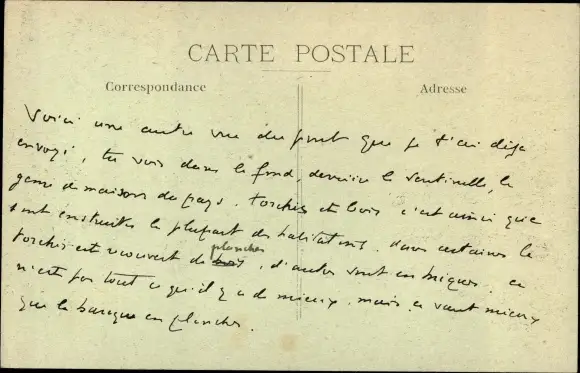 CARTE POSTALE
Correspondance
Adresse
Voici une autre vue du pont que je t'ai déja
envoyé, tu vois dans le fond, derrière la sentinelle, le
genre de maisons du pays. torchis et bois c'est ainsi que
sont construites la plupart des habitations. dans certaines le
planches
torchis est recouvert de bois, d'autres sont en briques. ce
n'est pas tout ce qu'il y a de mieux, mais ça vaut mieux
que la baraque en planches.